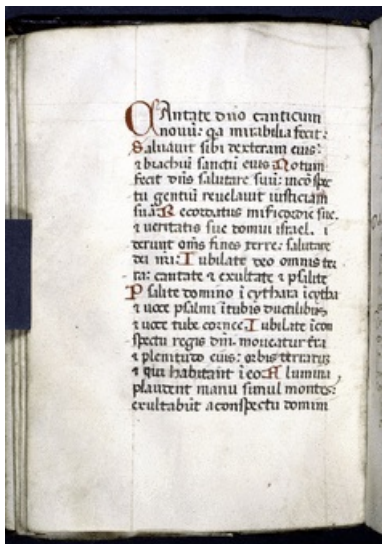 Cantate dn̄o canticum
nouū: q̄a mirabilia fecit:
Saluauit sibi dextera eius:
⁊ brachiū sanctū eius Notum
fecit dn̄s salutare suū: incōspe
tu gentiū reuelauit iusticiam
suā Recordatus mīẜicordie sue.
⁊ veritatis sue domui israel. i
derunt om̄s fines terre: salutare
dei nr̄i: Iubilate deo omnis ter
ra: cantate ⁊ exultate ⁊ psalite
Psalite domino ī cythara ī cytha
⁊ uoce psalmi ī tubis ductilibus
⁊ uoce tube cornee: Iubilate īcon
spectu regis dn̄i. moueatur
⁊ plenitudo eius: orbis terrarū
⁊ qui habitant ī eo: Flumina
plaudent manu simul montes:
exultabūt aconspectu domini